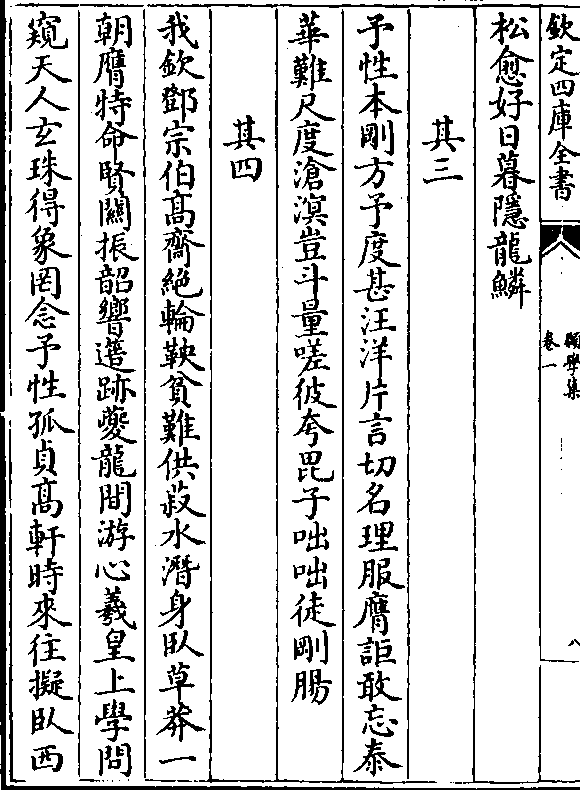 欽定四庫全書
類學集
卷一
八
松愈好日暮隱龍鱗
其三
予性本剛方予度甚汪洋片言切名理服膺詎敢忘泰
華難尺度滄溟豈斗量嗟彼夸毘子咄咄徒剛腸
其四
我欽鄧宗伯高齋絶輪鞅貧難供菽水潛身臥草莽一
朝膺特命賢關振韶響造跡夔龍間游心羲皇上學問
窺天人玄珠得象罔念予性孤貞高軒時來往擬臥西